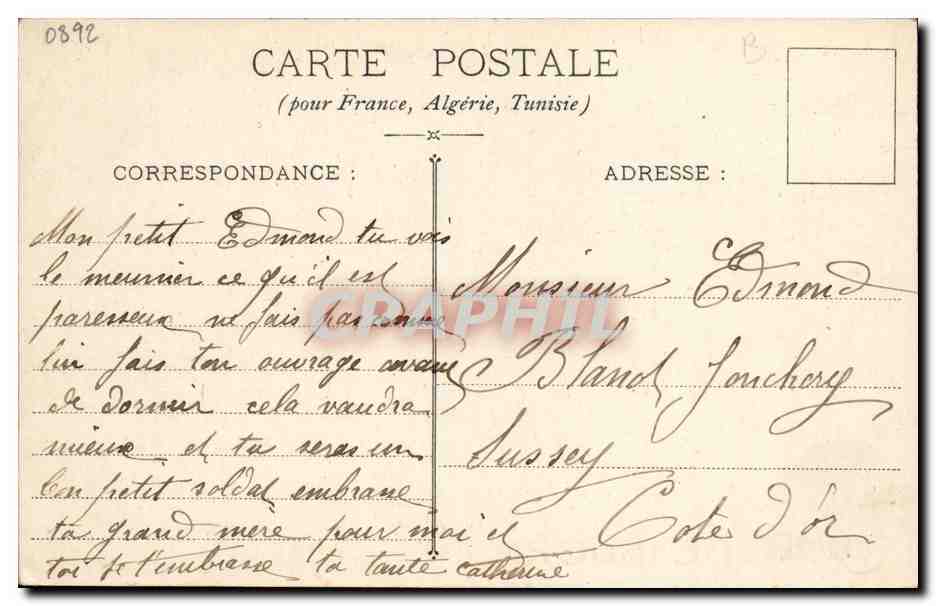 0892
B
CARTE POSTALE
(pour France, Algérie, Tunisie)
CORRESPONDANCE :
Mon petit Edmond tu vois
le meunier ce qu'il est
paresseux ne fais pas comme
lui fais ton ouvrage avant
de dormir cela vaudra
mieux et tu seras un
bon petit soldat embrasse
ta grand mère pour moi et
toi je t'embrasse ta tante catherine
ADRESSE :
Monsieur Edmond
Blanot Jonchery
Sussey
Cote d'or
CPAPHIL